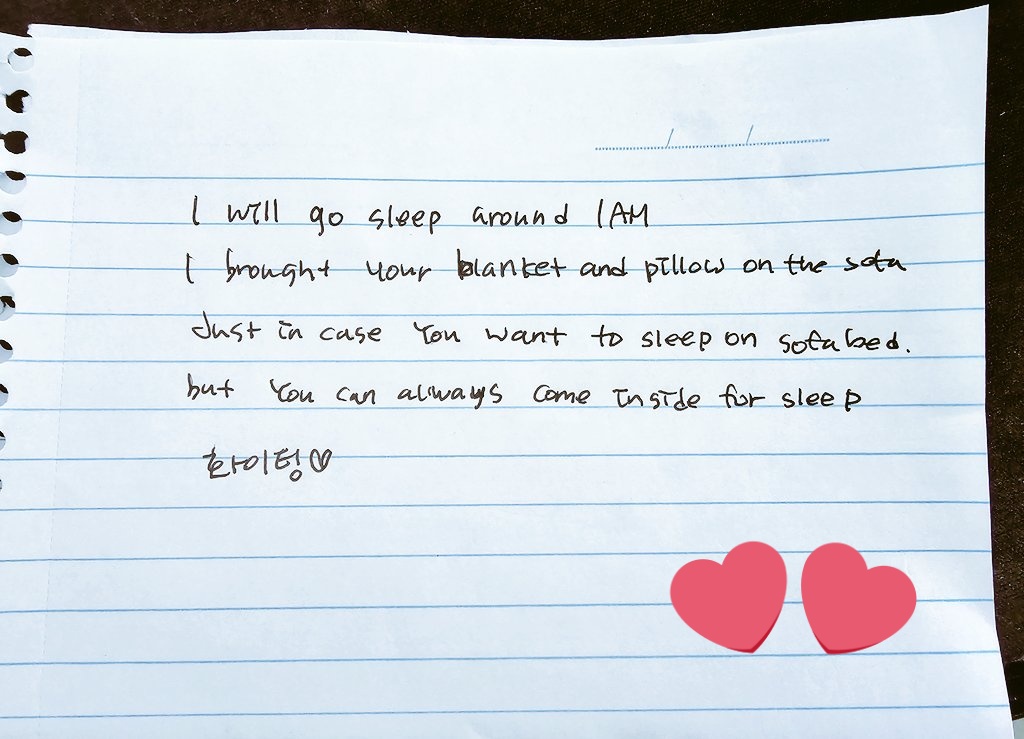 I will go sleep around 1AM
I brought your blanket and pillow on the sofa
Just in case You want to sleep on sofa bed.
but You can always come inside for sleep
화이팅♡